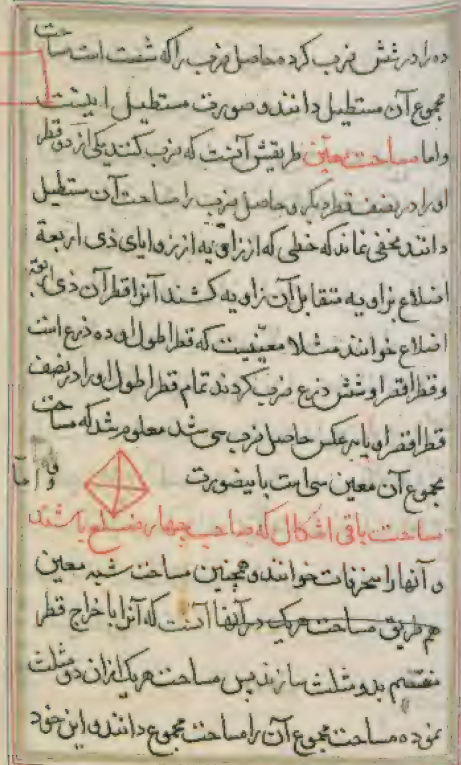 ده را در شش ضرب کرده حاصل ضرب را که شصت است مساحت
مجموع آن مستطیل دانند و صورت مستطیل اینست
واما مساحت معیّن طریقش آنست که ضرب کنند یکی از دو قطر
اورا در نصف قطر دیگر و حاصل ضرب را مساحت آن مستطیل
دانند مخفی نماند که خطی که از زاویه از زوایای ذی اربعة
اضلاع بزاویه متقابل آن زاویه کشند آنرا قطر آن ذی اربعة
اضلاع خوانند مثلا معیّنیست که قطر اطول او ده ذرع است
وقطر اقصر او شش ذرع ضرب کردند تمام قطر اطول اورا در نصف
قطر اقصر او یا بر عکس حاصل ضرب سی شد معلوم شد که مساحت
مجموع آن معین سی است باینصورت واما
مساحت باقی اشکال که صاحب چهار ضلع باشند
و آنها را منحرفات خوانند و همچنین مساحت شبه معین
هم طریق مساحت هریک در آنها آنست که آنرا باخراج قطر
منقسم بدو مثلث سازند پس مساحت هریک از آن دو مثلث
نموده مساحت مجموع آن را مساحت مجموع دانند و این خود